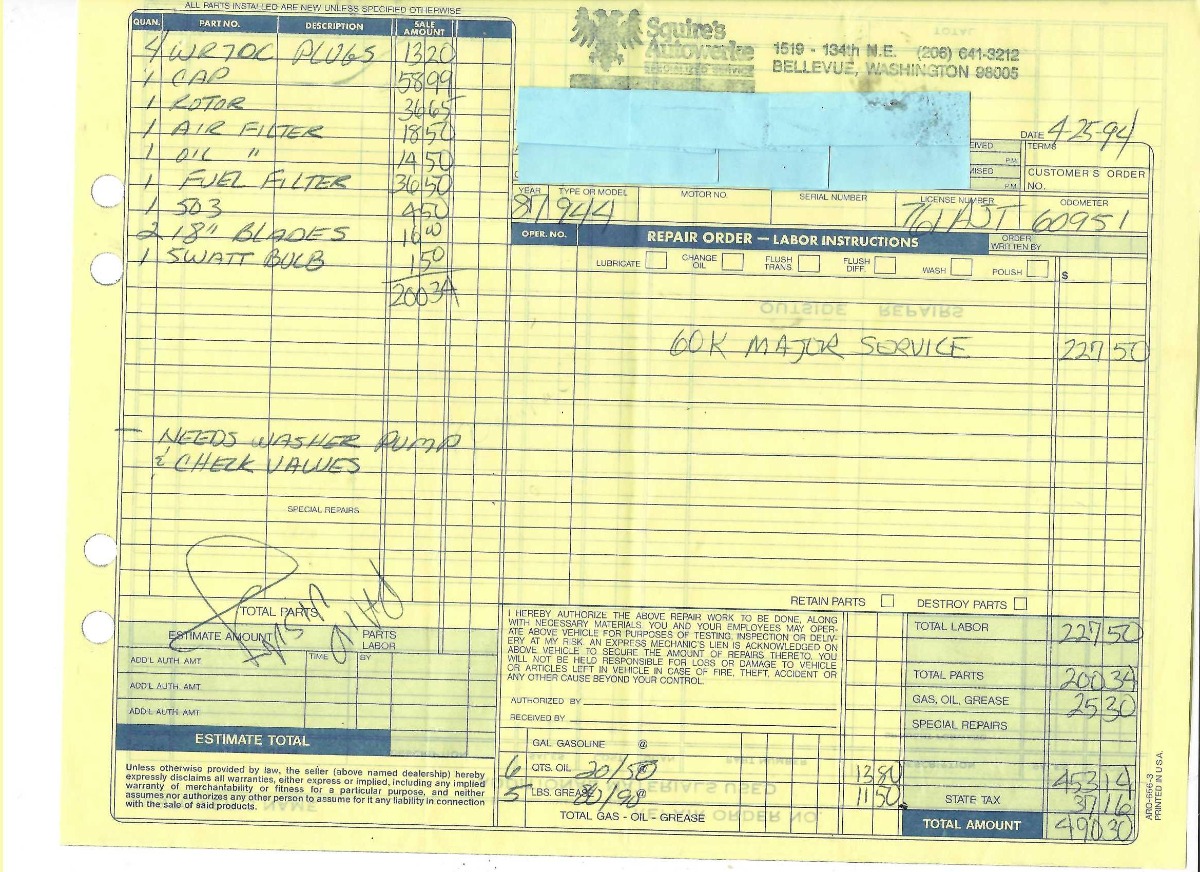 ALL PARTS INSTALLED ARE NEW UNLESS SPECIFIED OTHERWISE
QUAN. PART NO. DESCRIPTION SALE AMOUNT
4 WR70C PLUGS 13 20
1 CAP 58 99
1 ROTOR 36 65
1 AIR FILTER 18 50
1 OIL " 14 50
1 FUEL FILTER 36 50
1 503 4 50
2 18" BLADES 16 00
1 5WATT BULB 1 50
200 34
- NEEDS WASHER PUMP
& CHECK VALVES
SPECIAL REPAIRS
TOTAL PARTS
ESTIMATE AMOUNT PARTS LABOR
ADD'L AUTH. AMT. TIME BY
ADD'L AUTH. AMT.
ADD'L AUTH. AMT.
ESTIMATE TOTAL
Unless otherwise provided by law, the seller (above named dealership) hereby
expressly disclaims all warranties, either express or implied, including any implied
warranty of merchantability or fitness for a particular purpose, and neither
assumes nor authorizes any other person to assume for it any liability in connection
with the sale of said products.
Squire's
Autowerke
1519 - 134th N.E. (206) 641-3212
BELLEVUE, WASHINGTON 98005
DATE 4-25-94
TERMS
P.M.
CUSTOMER'S ORDER NO.
P.M.
YEAR TYPE OR MODEL MOTOR NO. SERIAL NUMBER LICENSE NUMBER ODOMETER
87 944 761AJT 60951
OPER. NO. REPAIR ORDER — LABOR INSTRUCTIONS ORDER WRITTEN BY
LUBRICATE CHANGE OIL FLUSH TRANS. FLUSH DIFF. WASH POLISH $
60K MAJOR SERVICE 227 50
RETAIN PARTS DESTROY PARTS
I HEREBY AUTHORIZE THE ABOVE REPAIR WORK TO BE DONE, ALONG
WITH NECESSARY MATERIALS. YOU AND YOUR EMPLOYEES MAY OPER-
ATE ABOVE VEHICLE FOR PURPOSES OF TESTING, INSPECTION OR DELIV-
ERY AT MY RISK. AN EXPRESS MECHANIC'S LIEN IS ACKNOWLEDGED ON
ABOVE VEHICLE TO SECURE THE AMOUNT OF REPAIRS THERETO. YOU
WILL NOT BE HELD RESPONSIBLE FOR LOSS OR DAMAGE TO VEHICLE
OR ARTICLES LEFT IN VEHICLE IN CASE OF FIRE, THEFT, ACCIDENT OR
ANY OTHER CAUSE BEYOND YOUR CONTROL.
AUTHORIZED BY
RECEIVED BY
GAL. GASOLINE @
6 QTS. OIL 20/50 13 80
5 LBS. GREASE 80/90 11 50
TOTAL GAS - OIL - GREASE
TOTAL LABOR 227 50
TOTAL PARTS 200 34
GAS, OIL, GREASE 25 30
SPECIAL REPAIRS
453 14
STATE TAX 37 16
TOTAL AMOUNT 490 30
ARO-666-3
PRINTED IN U.S.A.